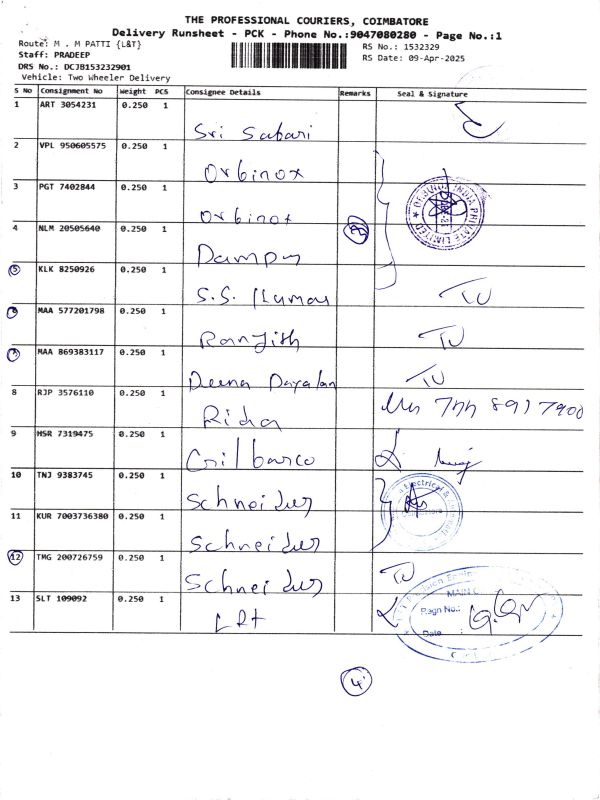 THE PROFESSIONAL COURIERS, COIMBATORE
Delivery Runsheet - PCK - Phone No.:9047080280 - Page No.:1
Route: M . M PATTI {L&T}
RS No.: 1532329
Staff: PRADEEP
RS Date: 09-Apr-2025
DRS No.: DCJB153232901
Vehicle: Two Wheeler Delivery
S No Consignment No Weight PCS Consignee Details Remarks Seal & Signature
1 ART 3054231 0.250 1 Sri Sabari
2 VPL 950605575 0.250 1 Orbinox
3 PGT 7402844 0.250 1 Orbinox
4 NLM 20505640 0.250 1
5 KLK 8250926 0.250 1 S.S. Kumar
6 MAA 577201798 0.250 1 Ranjith
7 MAA 869383117 0.250 1 Deena Dayalan
8 RJP 3576110 0.250 1
9 HSR 7319475 0.250 1 Gilbarco
10 TNJ 9383745 0.250 1 Schneider
11 KUR 7003736380 0.250 1 Schneider
12 TMG 200726759 0.250 1 Schneider
13 SLT 109092 0.250 1 L&t
INDIA PRIVATE LIMITED
Electrical &
Pagn No.:
Date :
4